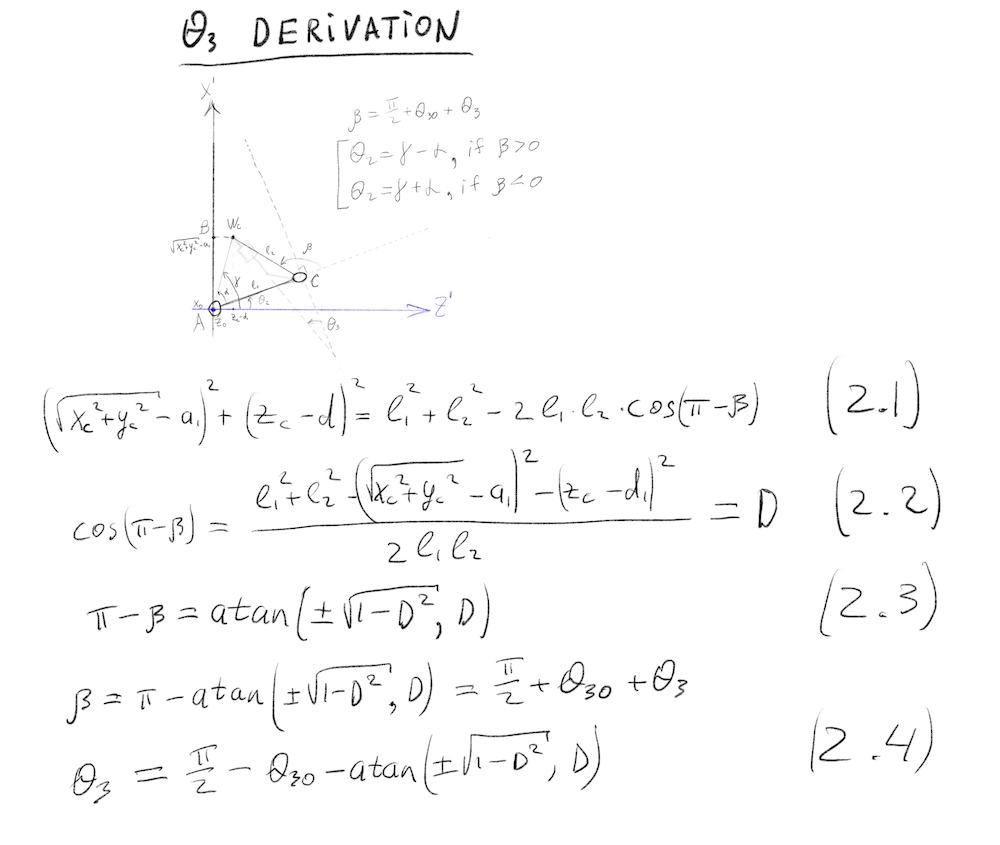 θ₃ DERiVATiON
X'
β = π/2 + θ₃₀ + θ₃
[θ₂ = γ - α, if β > 0
θ₂ = γ + α, if β < 0
B Wc
√(xc²+yc²) - a₁
l₂ β
C
γ
α l₁ θ₂
x₀
A z₀ zc-d Z'
θ₃
(√(xc²+yc²) - a₁)² + (zc - d)² = l₁² + l₂² - 2 l₁·l₂·cos(π-β) (2.1)
cos(π-β) = (l₁² + l₂² - (√(xc²+yc²) - a₁)² - (zc - d₁)²) / (2 l₁ l₂) = D (2.2)
π - β = atan(±√(1-D²), D) (2.3)
β = π - atan(±√(1-D²), D) = π/2 + θ₃₀ + θ₃
θ₃ = π/2 - θ₃₀ - atan(±√(1-D²), D) (2.4)